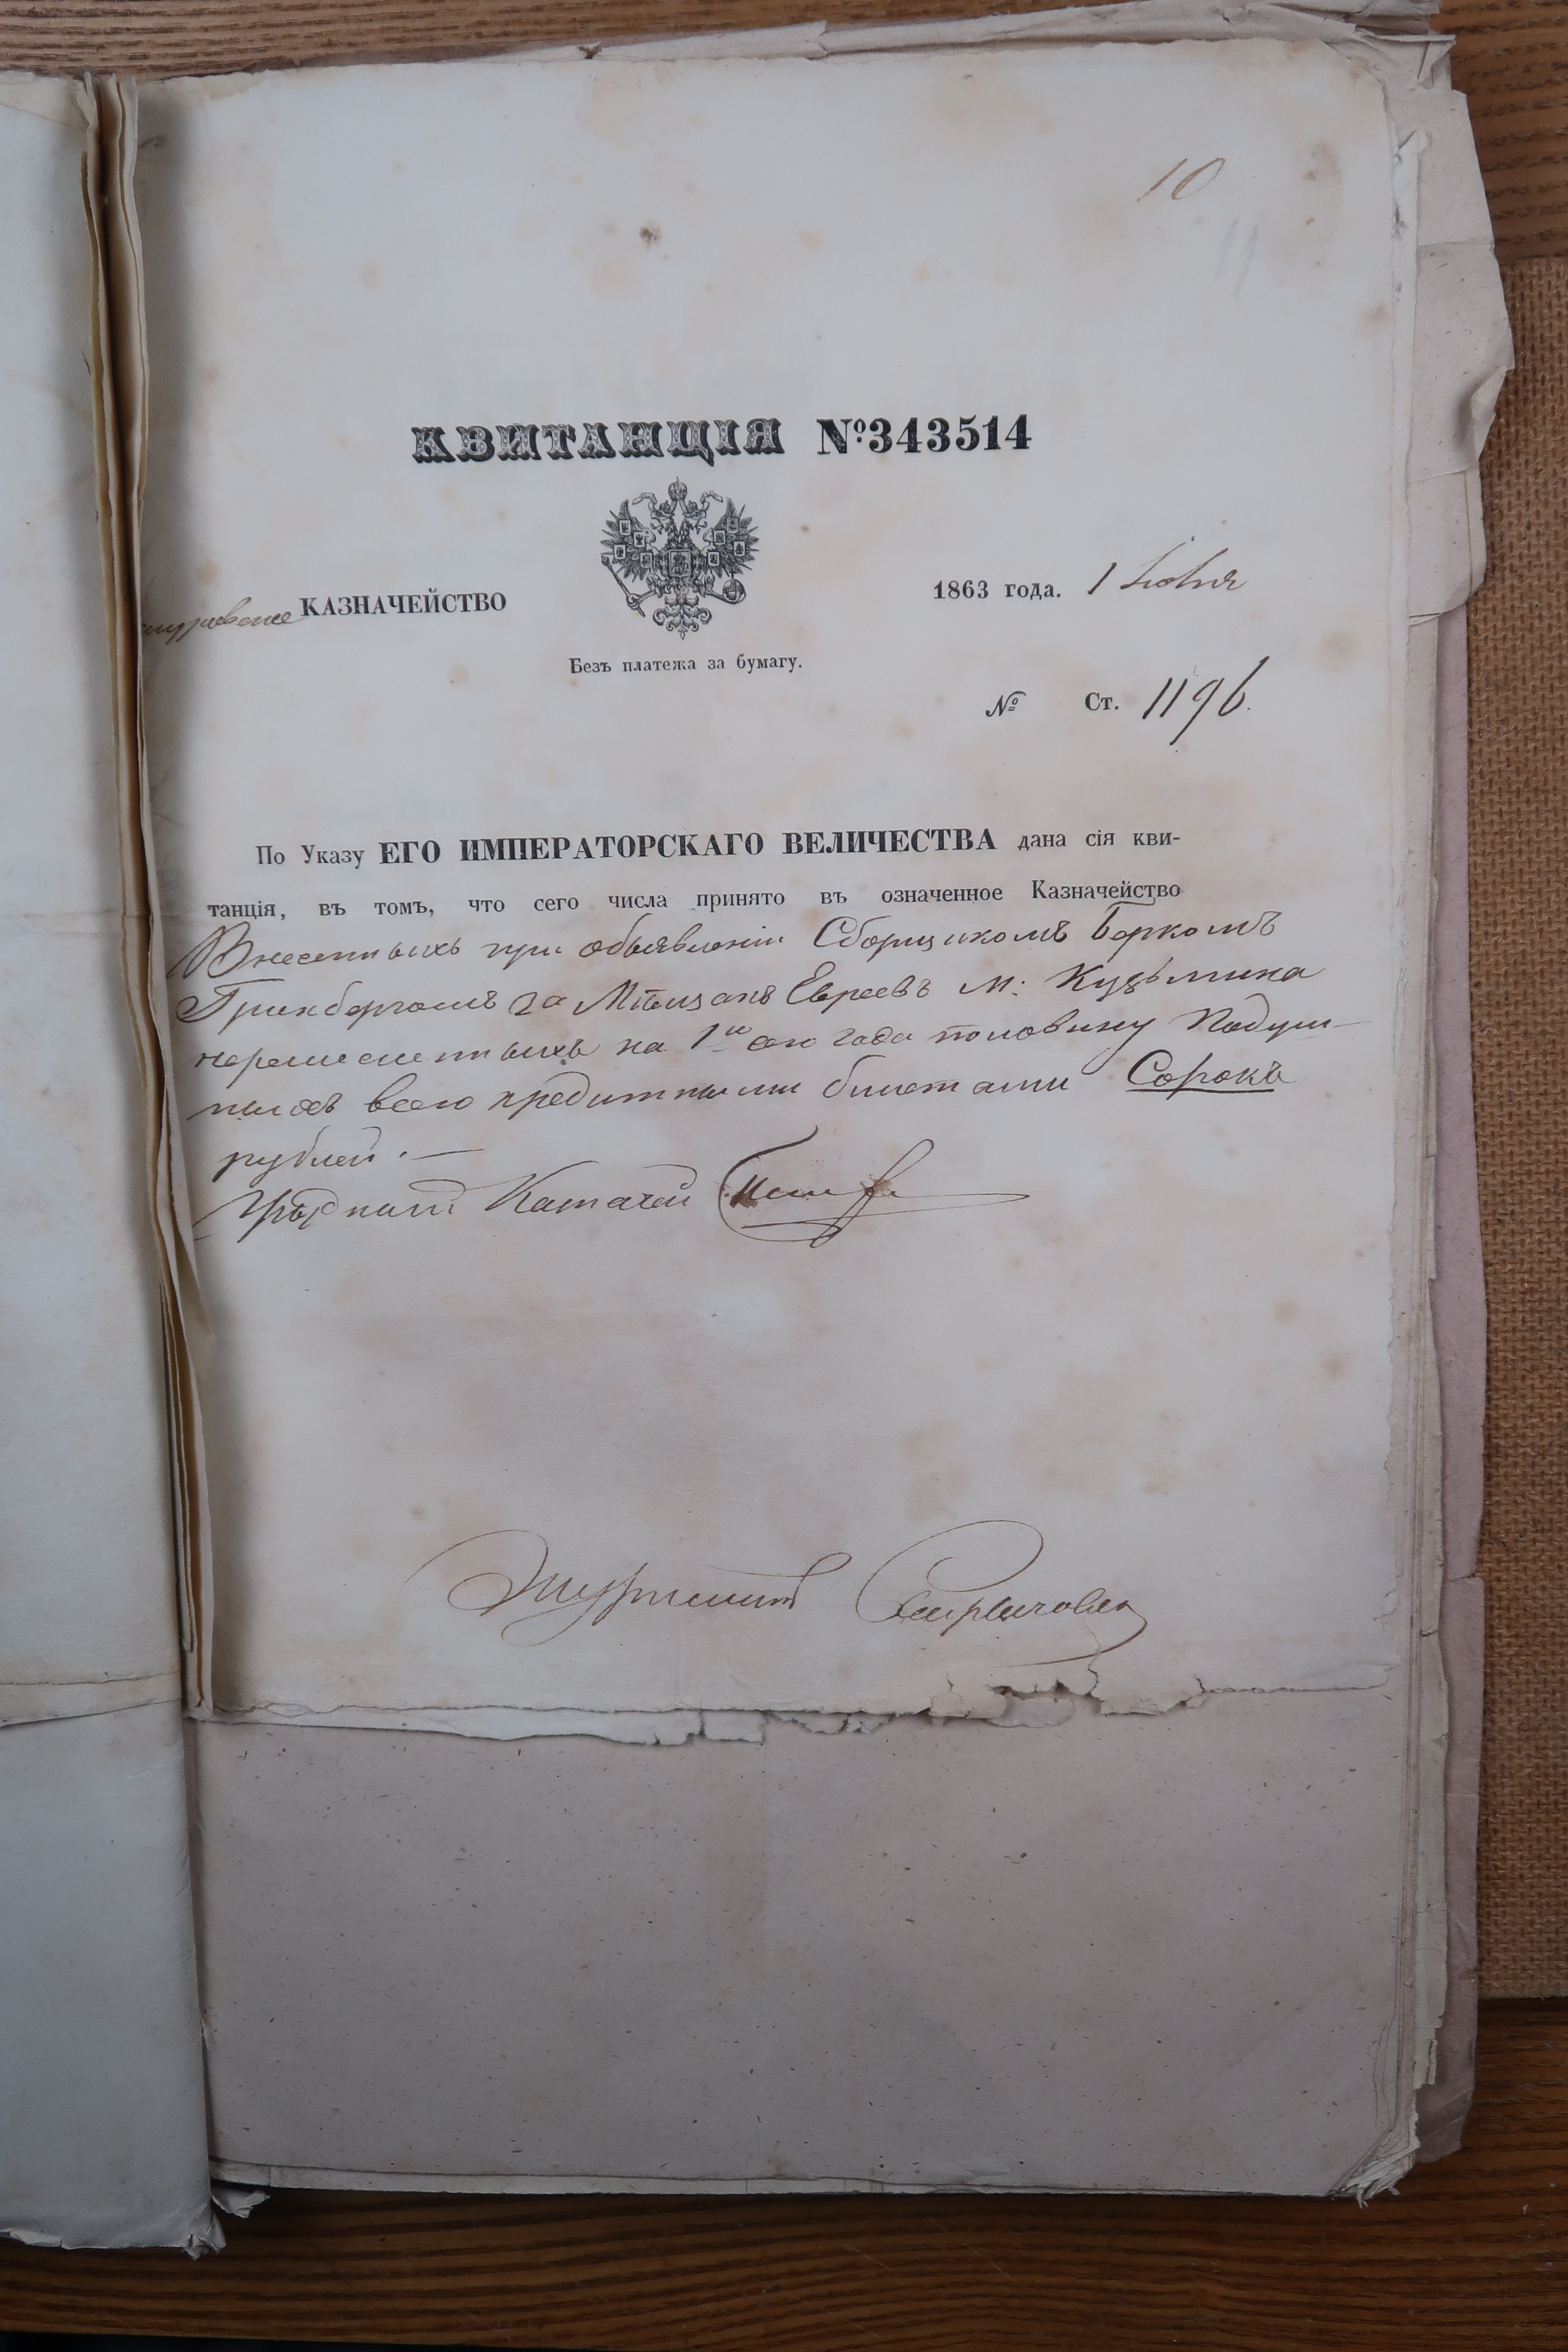 10
11
КВИТАНЦІЯ №343514
КАЗНАЧЕЙСТВО
1863 года. 1 Іюня
Безъ платежа за бумагу.
№ Ст. 1196.
По Указу ЕГО ИМПЕРАТОРСКАГО ВЕЛИЧЕСТВА дана сія кви-
танція, въ томъ, что сего числа принято въ означенное Казначейство
Внесенныхъ при объявленіи Сборщикомъ Беркомъ
Гринбергомъ за Мѣщанъ Евреевъ м: Кузьмина
на 1ю сего года половину Подуш-
ныхъ всего кредитными билетами Сорокъ
рублей. —
Уѣздный Казначей
Журналистъ